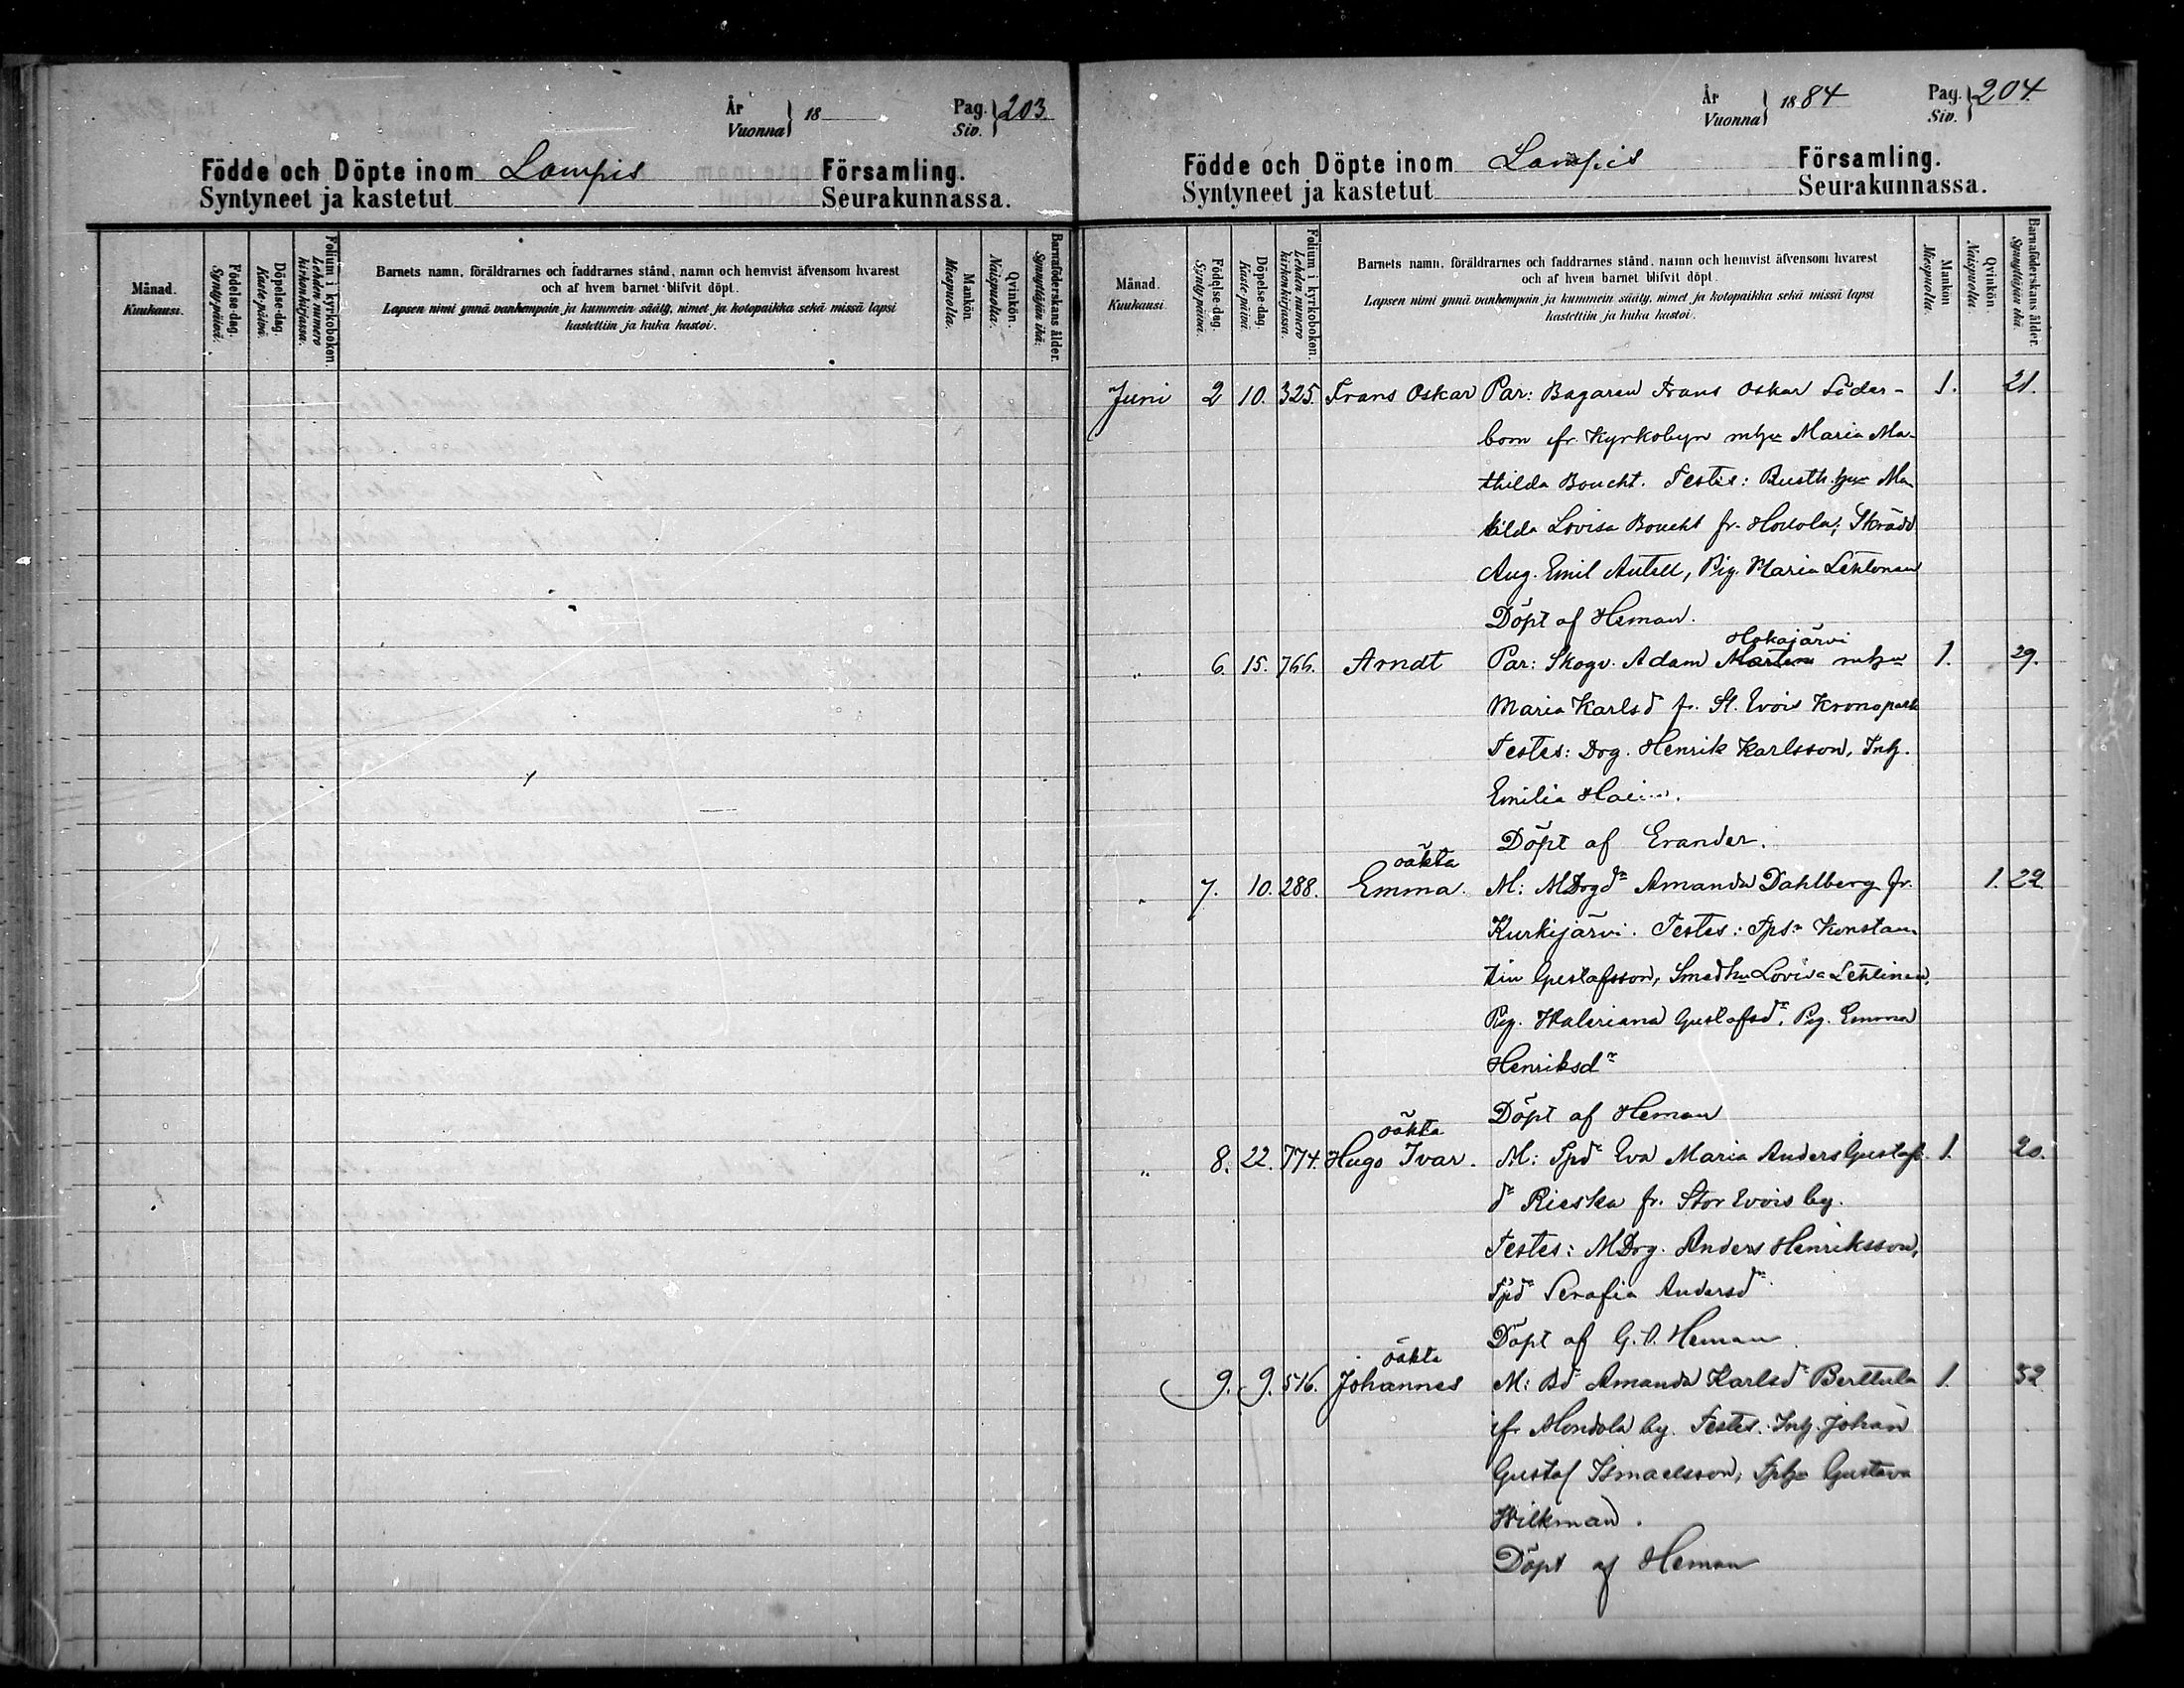 År
Vuonna } 18
Pag.
Siv. } 203.
Födde och Döpte inom Lampis Församling.
Syntyneet ja kastetut Seurakunnassa.
Månad.
Kuukausi.
Födelse-dag.
Synty-päivä.
Döpelse-dag.
Kaste-päivä.
Folium i kyrkoboken.
Lehden numero
kirkonkirjassa.
Barnets namn, föräldrarnes och faddrarnes stånd, namn och hemvist äfvensom hvarest
och af hvem barnet blifvit döpt.
Lapsen nimi ynnä vanhempain ja kummein sääty, nimet ja kotopaikka sekä missä lapsi
kastettiin ja kuka kastoi.
Mankön.
Miespuolia.
Qvinkön.
Naispuolia.
Barnaföderskans ålder.
Synnyttäjän ikä.
År
Vuonna } 1884
Pag.
Siv. } 204.
Födde och Döpte inom Lampis Församling.
Syntyneet ja kastetut Seurakunnassa.
Månad.
Kuukausi.
Födelse-dag.
Synty-päivä.
Döpelse-dag.
Kaste-päivä.
Folium i kyrkoboken.
Lehden numero
kirkonkirjassa.
Barnets namn, föräldrarnes och faddrarnes stånd, namn och hemvist äfvensom hvarest
och af hvem barnet blifvit döpt.
Lapsen nimi ynnä vanhempain ja kummein sääty, nimet ja kotopaikka sekä missä lapsi
kastettiin ja kuka kastoi.
Mankön
Miespuolia.
Qvinkön.
Naispuolia.
Barnaföderskans ålder.
Synnyttäjän ikä.
Juni 2 10. 325. Frans Oskar Par: Bagaren Frans Oskar Söder- 1. 21.
bom fr Kyrkobyn mhu Maria Ma-
thilda Boucht. Testes: Rusth. hu Ma
tilda Lovisa Boucht fr. Hollola, Skrädd
Aug. Emil Antell, Pig. Maria Lehtonen
Döpt af Heman.
Hokajärvi
" 6. 15. 766. Arndt Par: Skogv. Adam Martin mhu 1. 29.
Maria Karlsd fr. St. Evois Kronopark
Testes: Drg. Henrik Karlsson, Inh.
Emilia
Döpt af Erander.
oäkta
" 7. 10. 288. Emma. M: MDrgdr Amanda Dahlberg fr. 1. 22
Kurkijärvi. Testes: Tpsn Konstan
tin Gustafsson, Smedhu Lovisa Lehtinen,
Pig. Waleriana Gustafsdr, Pig. Emma
Henriksdr
Döpt af Heman
oäkta
" 8. 22. 774. Hugo Ivar. M: Tpdr Eva Maria Anders Gustafs 1. 20.
dr Rieska fr. Stor Evois by.
Testes: MDrg. Anders Henriksson,
Tpdr Serafia Andersdr
Döpt af G. O. Heman
oäkta
9. 9. 516. Johannes M: Bdr Amanda Karlsdr Berttula 1. 32
fr Mondola by. Testes. Inh. Johan
Gustaf Ismaelsson, Tphu Gustava
Wilkman.
Döpt af Heman